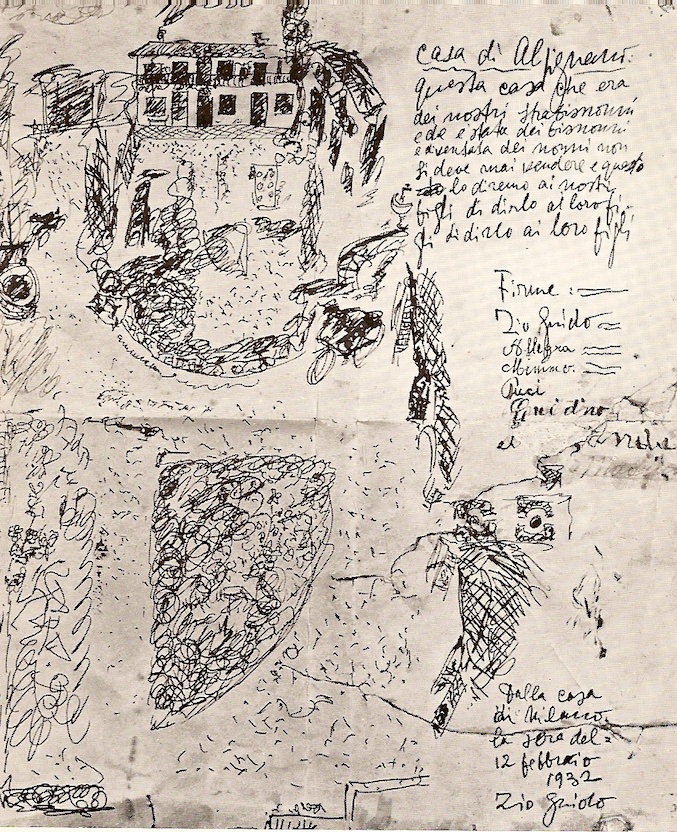 casa di Alpignano.
questa casa che era
dei nostri strabisnonni
e da e stata dei bisnonni
e diventata dei nonni non
si deve mai vendere e questo
lo diremo ai nostri
figli di dirlo ai loro fi-
gli di dirlo ai loro figli
Firme:
Zio Guido
Allegra
Mimmo
Puci
Guidino
ed
Dalla casa
di Milano.
la sera del=
12 febbraio
1932
Zio Guido